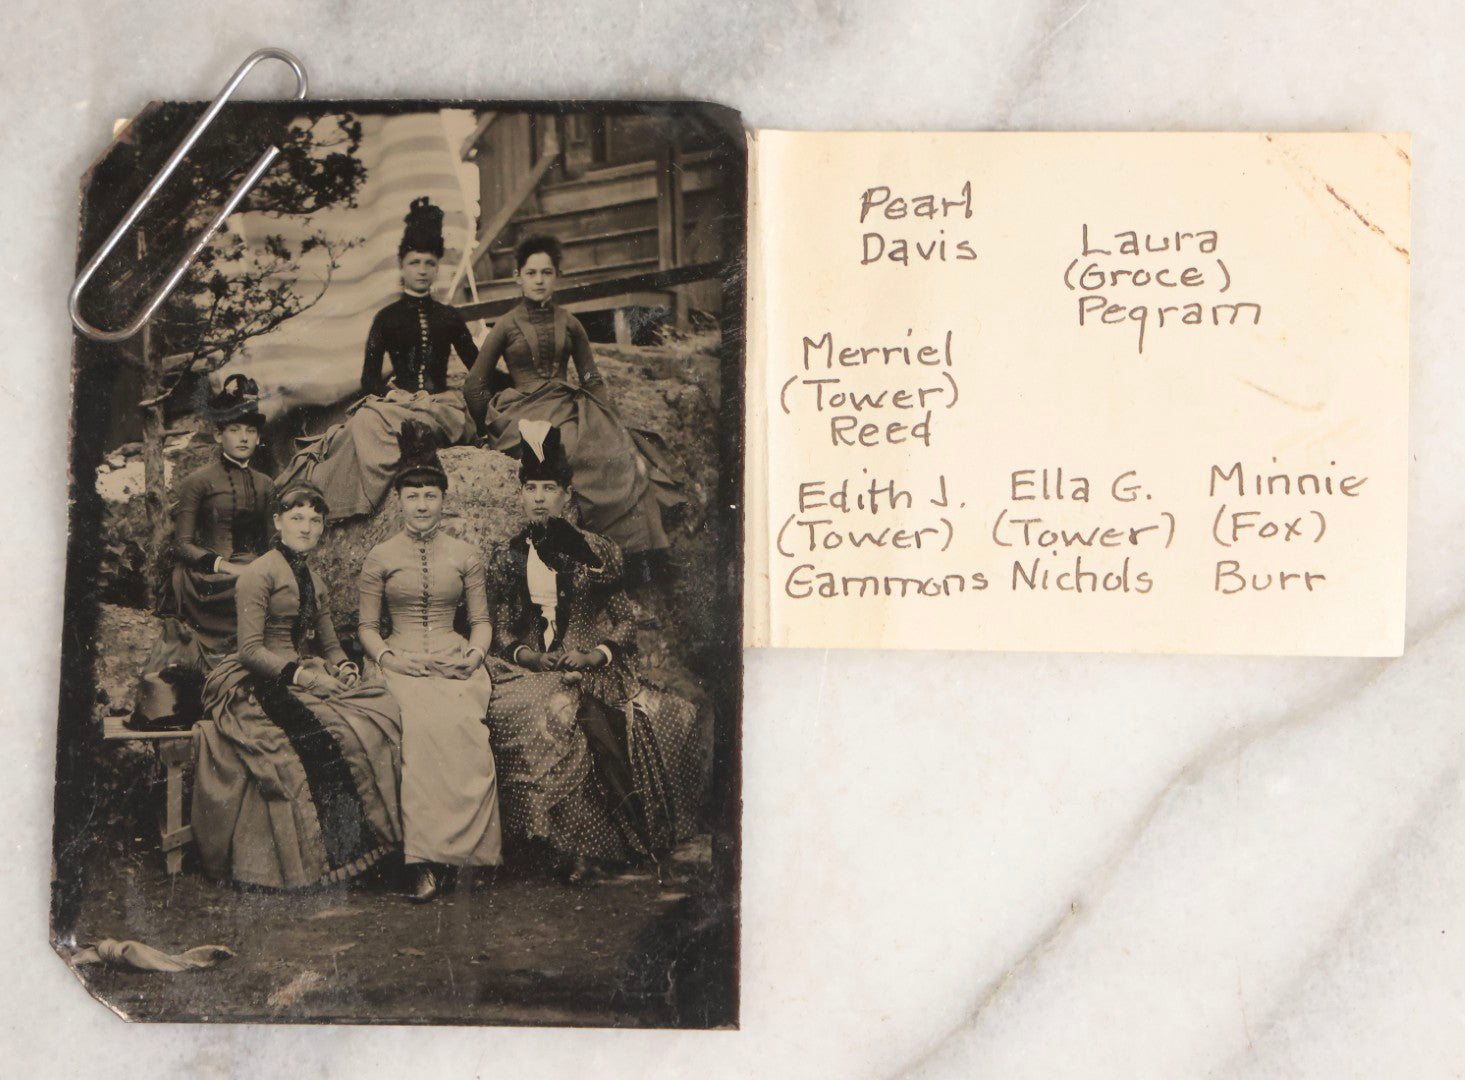 Pearl
Davis
Laura
(Groce)
Pegram
Merriel
(Tower)
Reed
Edith J.
(Tower)
Gammons
Ella G.
(Tower)
Nichols
Minnie
(Fox)
Burr